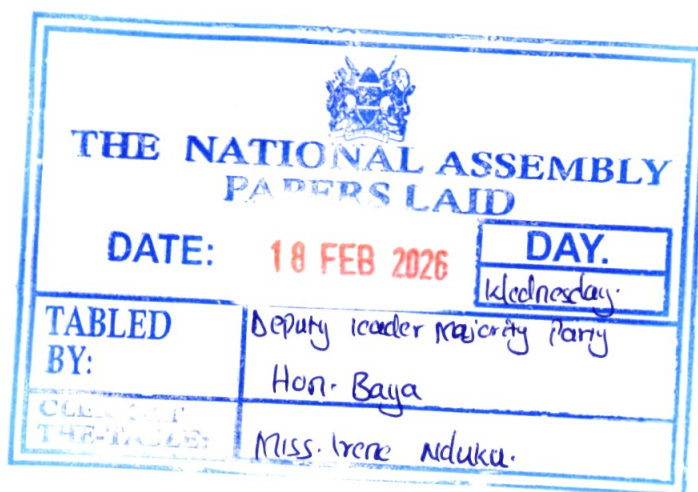 THE NATIONAL ASSEMBLY
PAPERS LAID
DATE: 18 FEB 2026
DAY.
Wednesday.
TABLED BY:
Deputy leader Majority Party
Hon. Baya
CLERK AT THE-TABLE:
Miss. Irene Nduku.